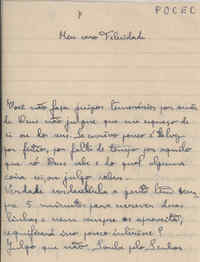 POCEC
Meu caro Felicidade
Você não faça juizos temerários por amôr
de Deus não julgue que me esqueço de
si ou dos seus. Se escrevo pouco é talvez
por feitio, por falta de tempo, por aquilo
que só Deus sabe e do qual alguma
coisa eu ou julgo saber.
Verdade verdadinha a gente tem
pa 5 minutos para escrever duas
linhas e nem sempre os aproveita,
significará isso pouco interêsse?
Julgo que não,